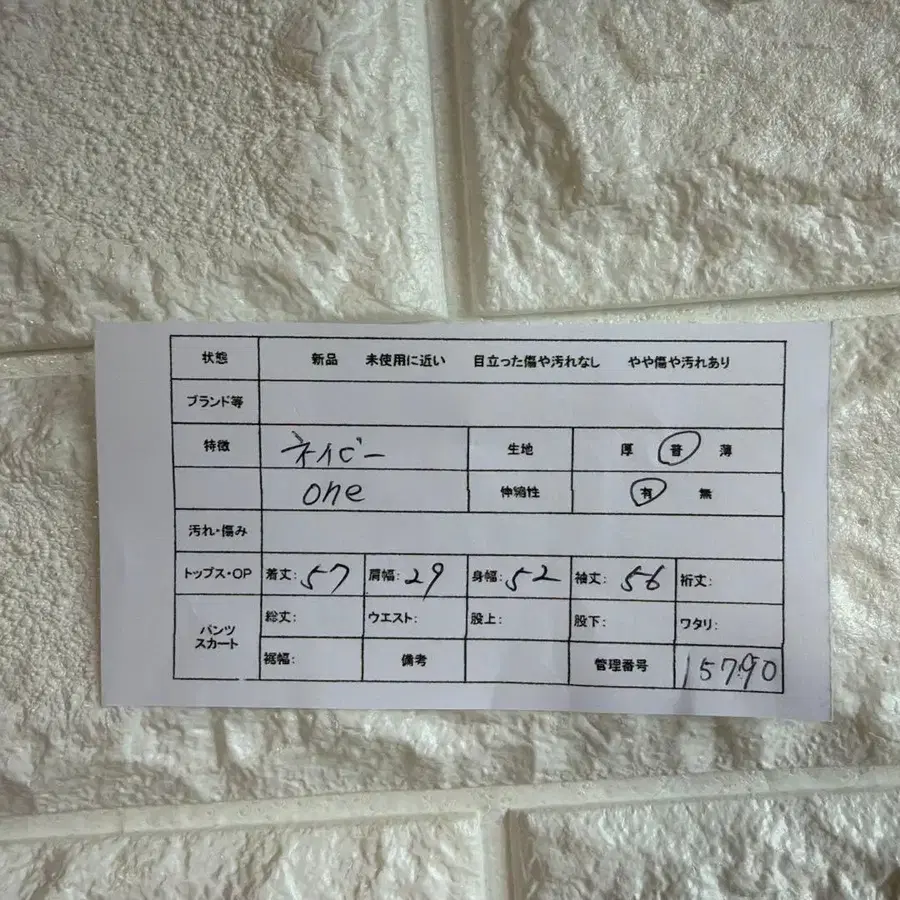 状態 新品 未使用に近い 目立った傷や汚れなし やや傷や汚れあり
ブランド等
特徴 ネイビー 生地 厚 普 薄
one 伸縮性 有 無
汚れ・傷み
トップス・OP 着丈: 57 肩幅: 29 身幅: 52 袖丈: 56 裄丈:
パンツ スカート 総丈: ウエスト: 股上: 股下: ワタリ:
裾幅: 備考 管理番号 15790